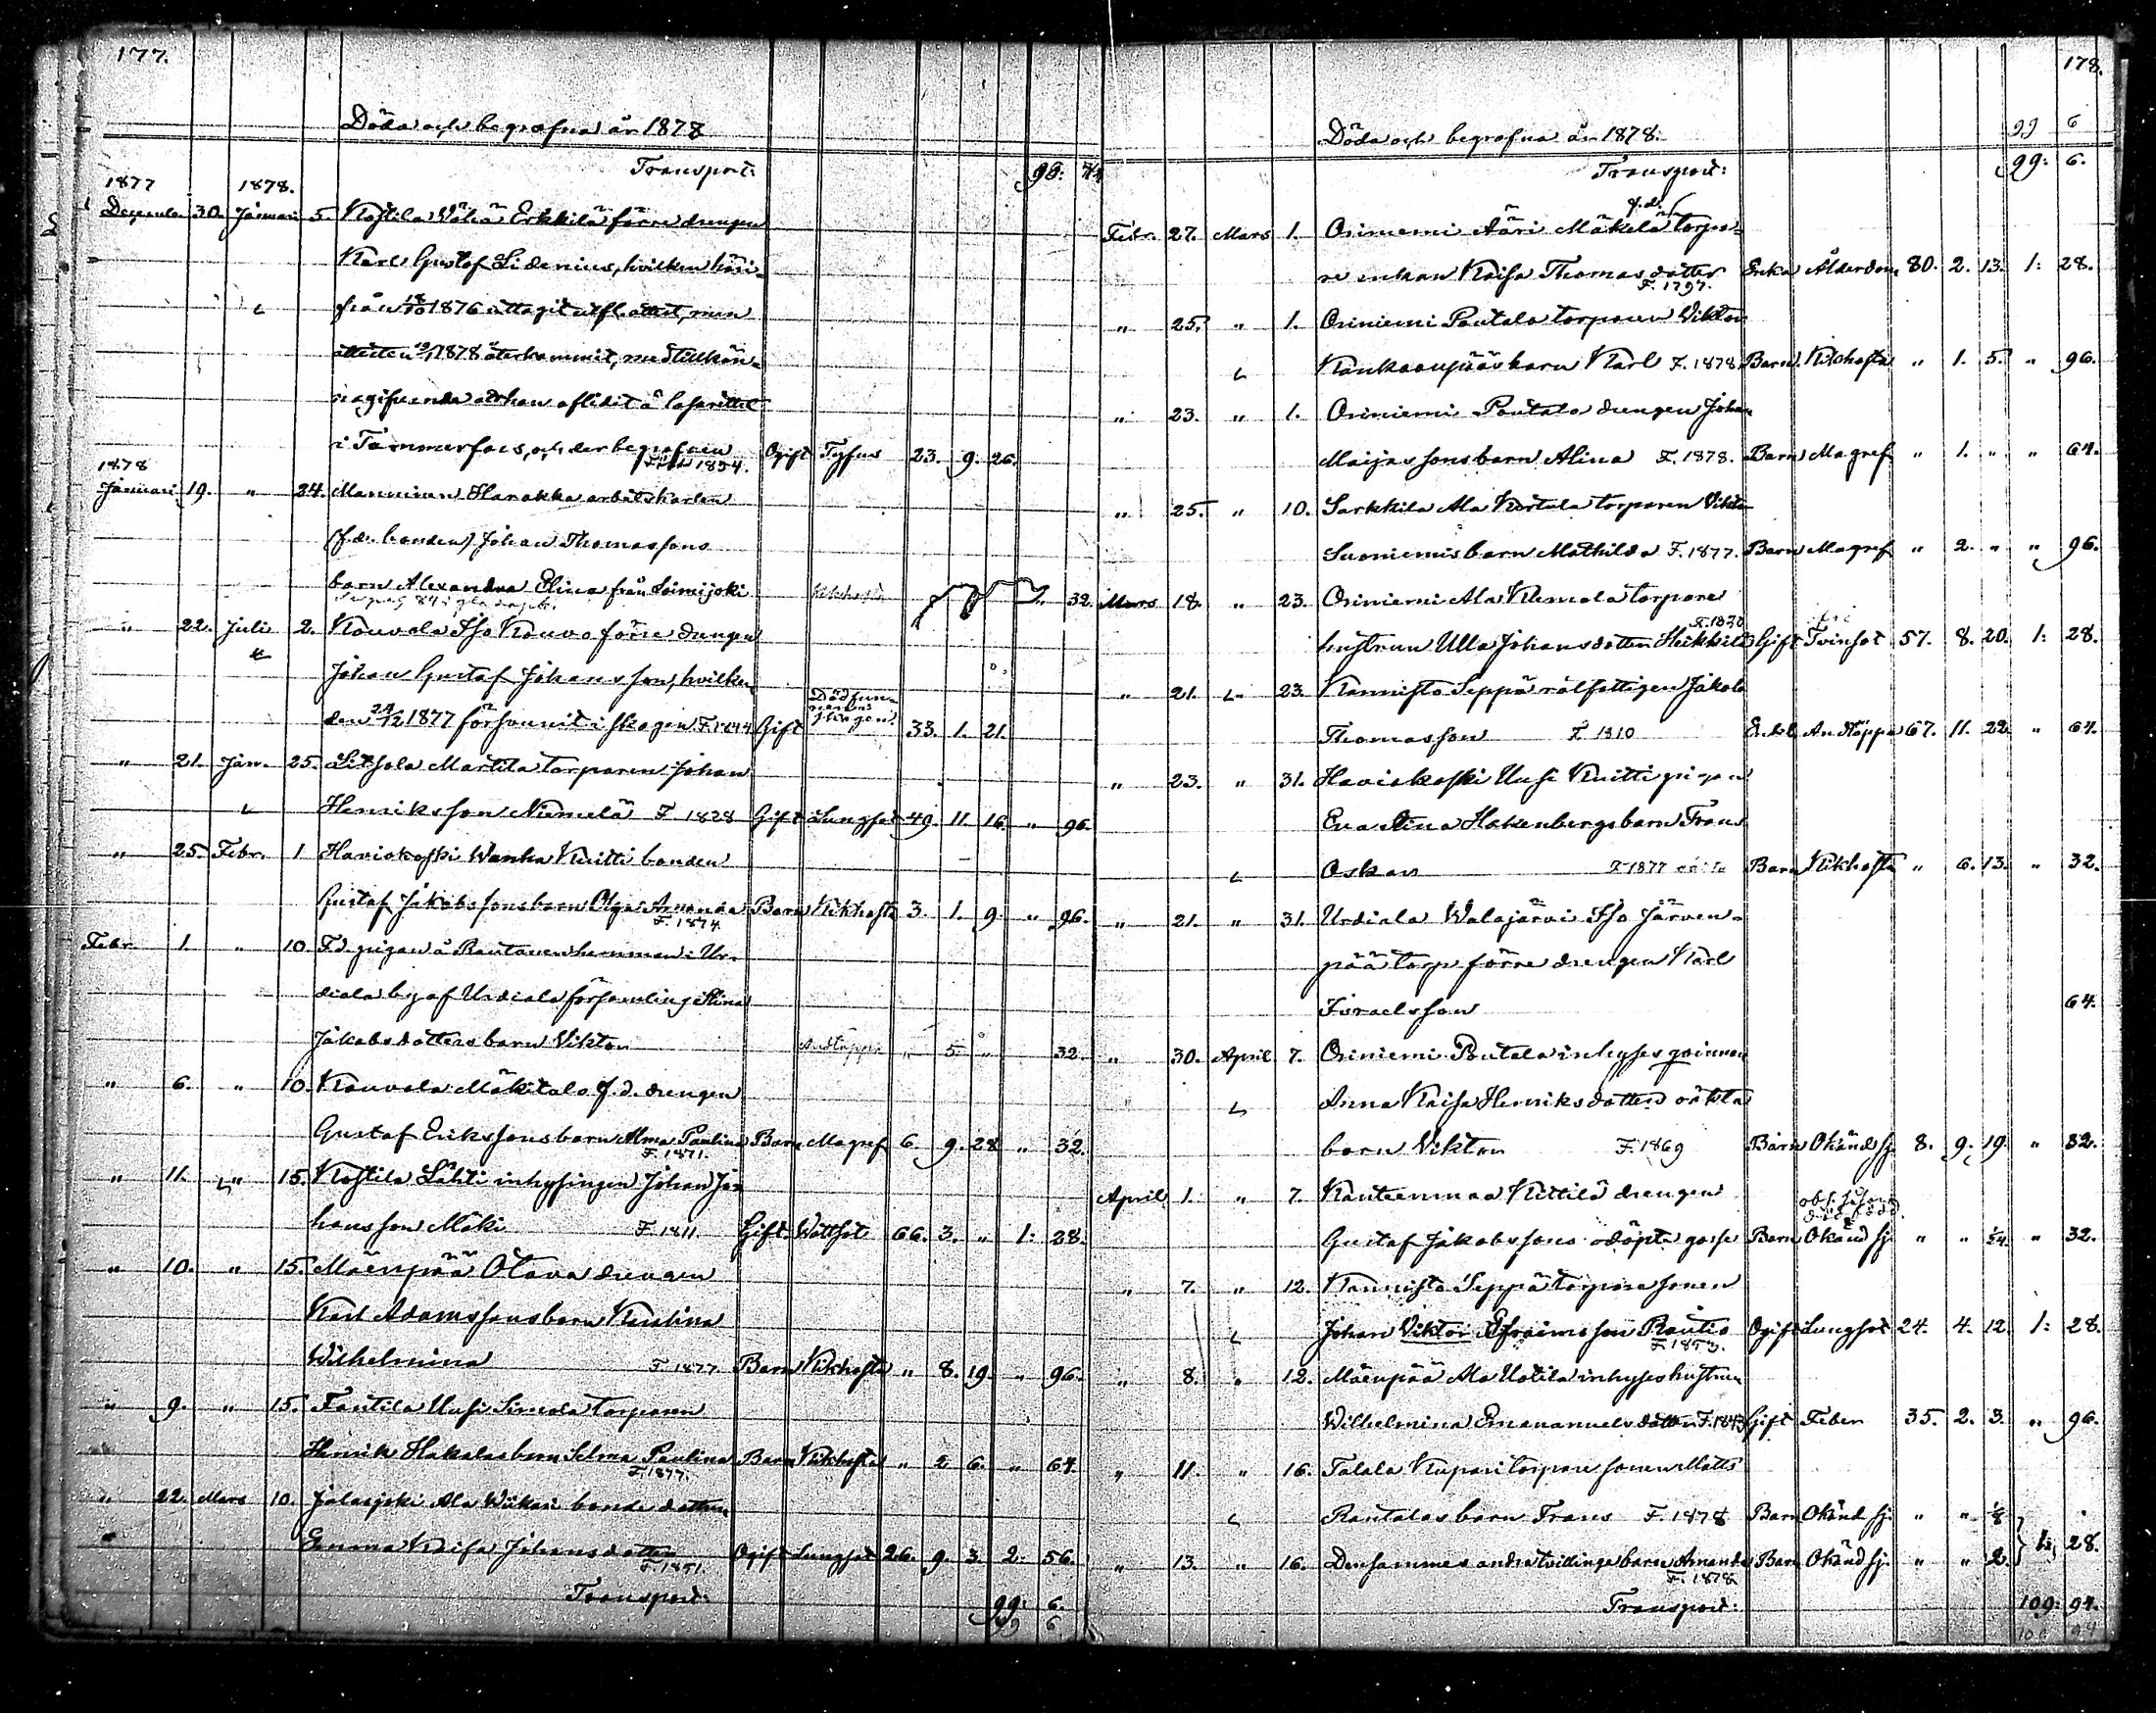 177.
Döda och begrafna år 1878
Transport:
1877 1878.
Decemb. 30. Januari 5. Kostila Wähä Erkkilä förre drengen
Karl Gustaf Sidenius, hvilken häri-
från 1876 uttagit utfl. attest, men
attesten 1878 återkommit, med tillkän-
nagifvende att han aflidit å lasarettet
i Tammerfors, och der begrafven 1854. Ogift Tyfus 23. 9. 26.
1878
Januari 19. " 24. Manninen Harakka arbetskarlen
(f.d. bonden) Johan Thomassons
barn Alexandra Elina från Loimijoki Kikhosta 32.
" 22. Juli 2. Kouvola Iso Kouvo förre drengen
Johan Gustaf Johansson, hvilken
den 24/12 1877 försvunnit i skogen F. 1844 Gift Död funnen i skogen 33. 1. 21.
" 21. Jan. 25. Martila torparen Johan
Henriksson Niemelä F. 1828 Gift Lungsot 49. 11. 16. " 96.
" 25. Febr. 1 Haviokoski Wanha Kuitti bonden
Gustaf Jakobssons barn Olga Amanda F. 1874. Barn Kikhosta 3. 1. 9. " 96.
Febr. 1. " 10. F.d. pigan å Rautanen hemman i Ur-
diala by af Urdiala församling Stina
Jakobsdotters barn Viktor Andtäppa " 5. " 32.
" 6. " 10. Kouvola Mäkitalo f.d. drengen
Gustaf Erikssons barn Alma Paulina F. 1871. Barn Magref 6. 9. 28 " 32.
" 11. " 15. Kostila Lähti inhysingen Johan Jo-
hansson Mäki F. 1811 Gift Wattsot 66. 3. " 1: 28.
" 10. " 15. Mäenpää Otava drengen
Karl Adamssons barn Karolina
Wilhelmina F. 1877 Barn Kikhosta " 8. 19. " 96.
" 9. " 15. Fantila Uusi Simola torparen
Henrik Hakalas barn Selma Paulina F. 1877. Barn Kikhosta " 2 6. " 64.
" 22. Mars 10. Jalasjoki Ala Wiikari bonde dottren
Emma Kaisa Johansdotter F. 1851. Ogift Lungsot 26. 9. 3. 2: 56.
Transport: 99: 6.
99 6
178.
Döda och begrafna år 1878.
99 6
Transport: 99: 6.
Febr. 27. Mars 1. Oriniemi Ääri Mäkelä f.d. torpa-
re enkan Kaisa Thomasdotter F. 1797. Enka Ålderdom 80. 2. 13. 1: 28.
" 25. " 1. Oriniemi Pontalo torparen Viktor
Kankaanpääs barn Karl F. 1878. Barn Kikhosta " 1. 5. " 96.
" 23. " 1. Oriniemi Pontalo drengen Johan
Maijassons barn Alina F. 1878. Barn Magref " 1. " " 64.
" 25. " 10. Sarkkila Ala Kurtula torparen Viktor
Suoniemis barn Mathilda F. 1877. Barn Magref " 2. " " 96.
Mars 18. " 23. Oriniemi Ala Klemola torpare
hustrun Ulla Johansdotter Heikkilä F. 1820 Gift Tvinsot 57. 8. 20. 1: 28.
" 21. 23. Kannisto Seppä rålfattigen Jakob
Thomasson F. 1810 Enkl. Andtäppa 67. 11. 22. " 64.
" 23. " 31. Haviokoski Uusi Kuitti pigan
Eva Stina Hakenbergs barn Frans
Oskar F. 1877 Barn Kikhosta " 6. 13. " 32.
" 21. " 31. Urdiala Walajärvi Iso Järven-
pää torp förre drengen Karl
Israelsson 64.
" 30. April 7. Oriniemi Pontala inhyses qvinnan
Anna Kaisa Henriksdotters oäkta
barn Viktor F. 1869 Barn Okänd sj. 8. 9. 19. " 32.
April 1. " 7. Kanteenmaa Kittilä drengen
Gustaf Jakobssons odöpta gosse Barn Okänd sj. " " 1/24. " 32.
" 7. " 12. Kannisto Seppä torpare sonen
Johan Viktor Efraimsson Rautio F. 1853. Ogift Lungsot 24. 4. 12. 1: 28.
" 8. " 12. Mäenpää Ala Uotila inhyses hustrun
Wilhelmina Emanuelsdotter F. 1843 Gift Feber 35. 2. 3. " 96.
" 11. " 16. Talala Kupari torpare sonen Matts
Rantalas barn Frans F. 1878 Barn Okänd sj. " " 1/8
" 13. " 16. Densammes andra tvillinge barn Amanda F. 1878 Barn Okänd sj. " " 2. 1: 28.
Transport: 109: 94.